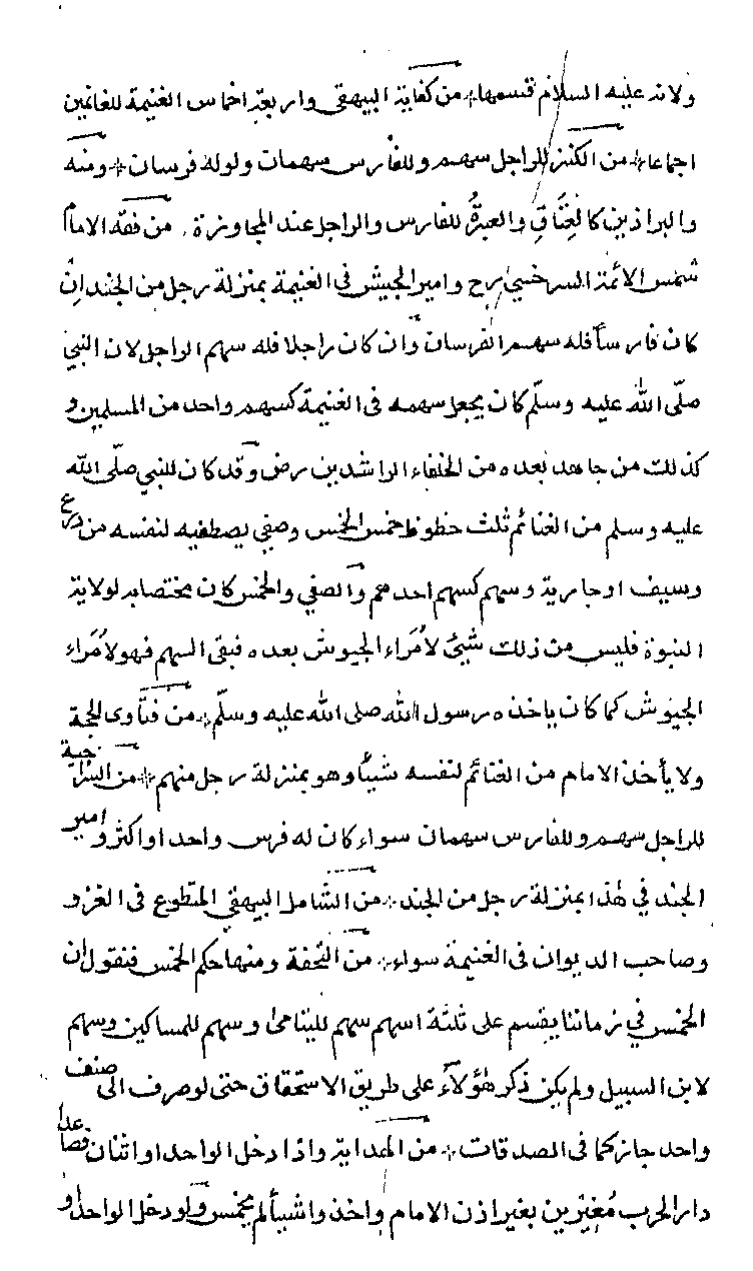 ولانه عليه السلام قسمها * من كفاية البيهقى واربعة اخماس الغنيمة للغانمين
اجماعا * من الكنز للراجل سهم وللفارس سهمان ولوله فرسان * ومنه
والبراذين كالعِتَاقِ والعبرةُ للفارس والراجل عند المجاوزة . من فقه الامام
شمس الائمة السرخسي رح وامير الجيش فى الغنيمة بمنزلة رجل من الجند ان
كان فارسا فله سهم الفرسان وان كان راجلا فله سهم الراجل لان النبي
صلّى الله عليه وسلّم كان يجعل سهمه فى الغنيمة كسهم واحد من المسلمين و
كذلك من جاهد بعده من الخلفاء الراشدين رض وقد كان للنبي صلّى الله
عليه وسلم من الغنائم ثلث حظوظ خمس الخمس وصفي يصطفيه لنفسه من درع
وسيف او جارية وسهم كسهم احدهم والصفي والخمس كان مختصا به لولاية
النبوة فليس من ذلك شيئ لأمَراء الجيوش بعده فبقى السهم فهو لأمَراء
الجيوش كما كان ياخذه رسول الله صلى الله عليه وسلّم * من فتاوى الحجة
ولا يأخذ الامام من الغنائم لنفسه شيئا وهو بمنزلة رجل منهم * من السراجية
للراجل سهم وللفارس سهمان سواء كان له فرس واحد او اكثر و امير
الجند في هذا بمنزلة رجل من الجند * من الشامل البيهقي المتطوع فى الغزو
وصاحب الديوان فى الغنيمة سواء * من التحفة ومنها حكم الخمس فنقول ان
الخمس في زماننا يقسم على ثلثة اسهم سهم لليتامى وسهم للمساكين وسهم
لابن السبيل ولم يكن ذكر هؤلآء على طريق الاستحقاق حتى لو صرف الى صنف
واحد جاز كما فى الصدقات * من الهداية واذا دخل الواحد او اثنان فصاعدا
دار الحرب مُغِيْرين بغير اذن الامام واخذوا شيأ لم يخمس ولو دخل الواحد او